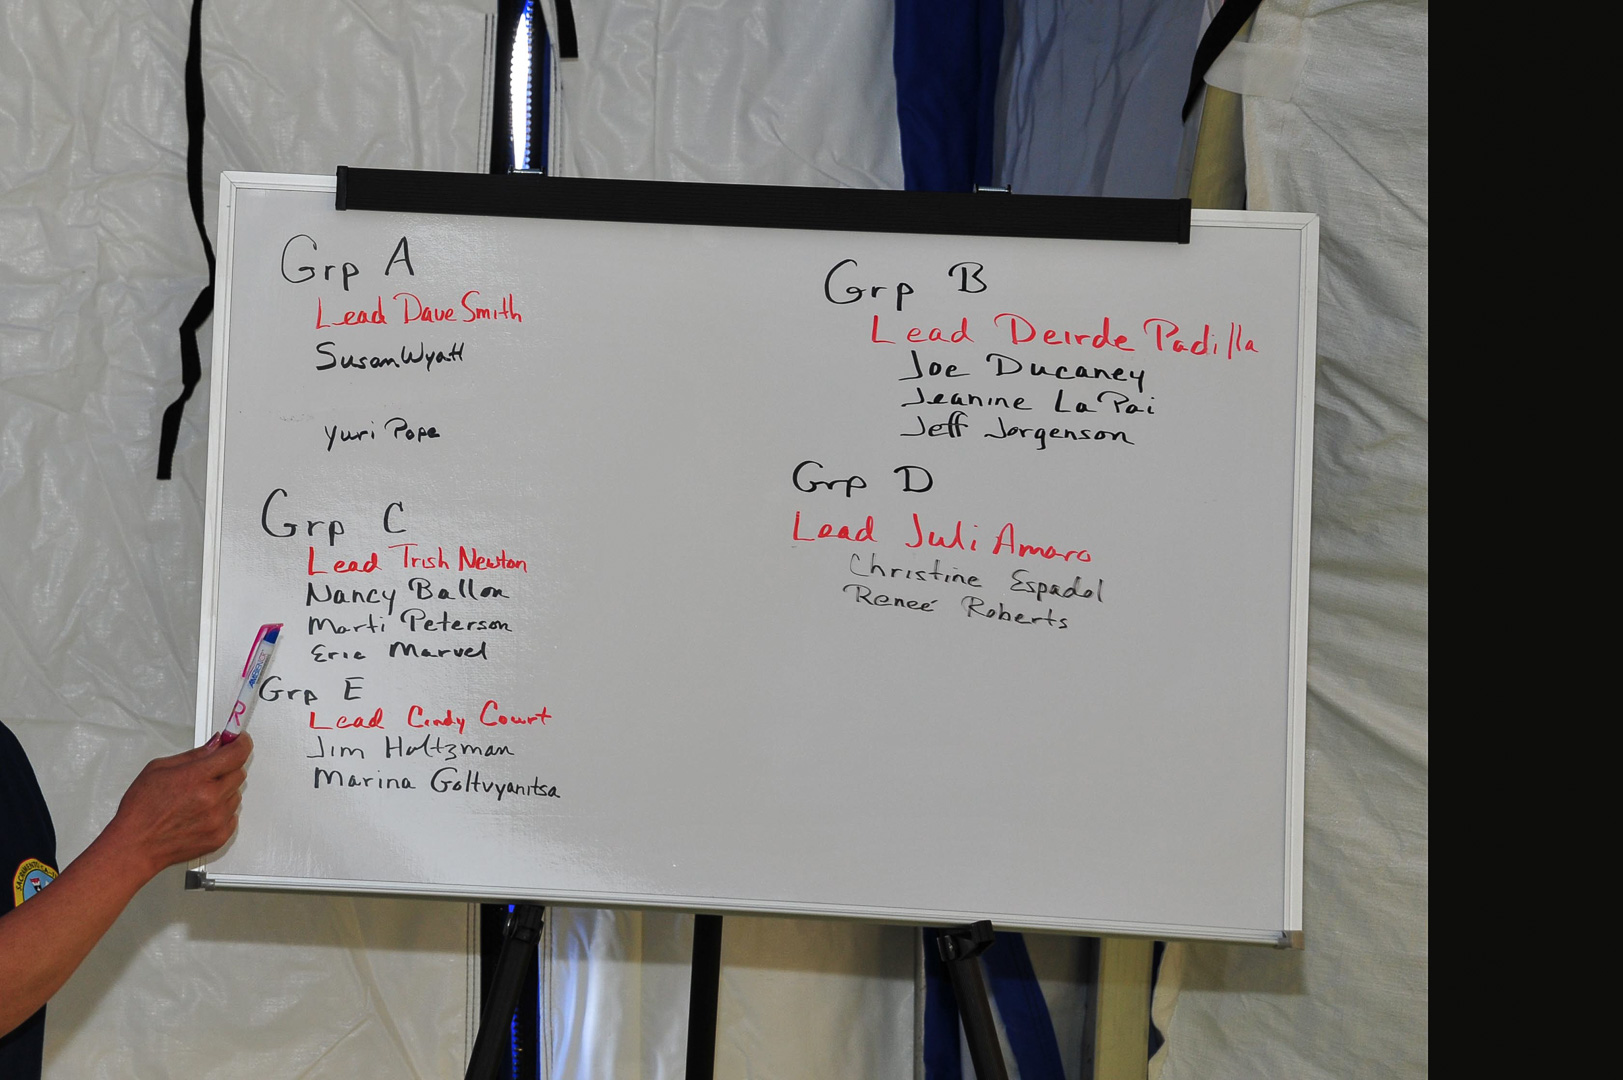 Grp A
Lead Dave Smith
Susan Wyatt
Yuri Pope
Grp B
Lead Deirde Padilla
Joe Ducaney
Jeanine La Pai
Jeff Jorgenson
Grp C
Lead Trish Newton
Nancy Ballon
Marti Peterson
Eric Marvel
Grp D
Lead Juli Amaro
Christine Espadol
Reneé Roberts
Grp E
Lead Cindy Court
Jim Holtzman
Marina Goltvyanitsa
SACRAMENTO